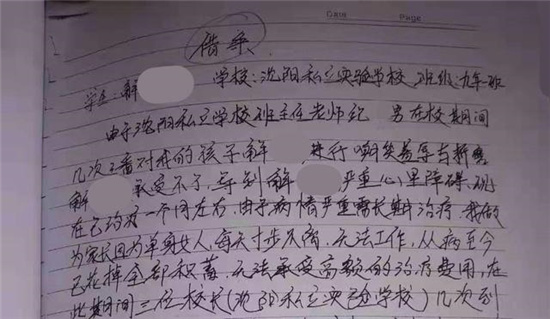 Date Page
借条
学生:解 学校:沈阳私立实验学校 班级:九年
由于沈阳私立学校班主任老师纪 男在校期间
几次三番对我的孩子解 进行嘲笑羞辱与折磨
解 承受不了,导到解 严重心里障碍,现
在已约有一个月左右由于病情严重需长期治疗.我做
为家长因为单身女人,每天寸步不离.无法工作,从病至今
已花掉全部积蓄.无法承受高额的治疗费用,在
此期间三位校长(沈阳私立实验学校)几次到